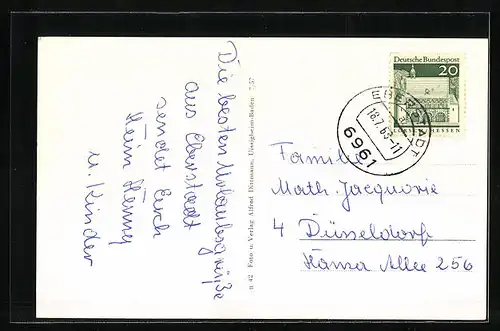 Die besten Urlaubsgrüße
aus Eberstadt
sendet Euch
Heini Henny
u. Kinder
n 42 Foto u. Verlag Alfred Uissigheim-Baden 7 57
Deutsche Bundespost
20
LORSCH/HESSEN
EBERSTADT
18.7.68-11
6961
Familie
Math. Jacquorie
4 Düsseldorf
Hansa Allee 256